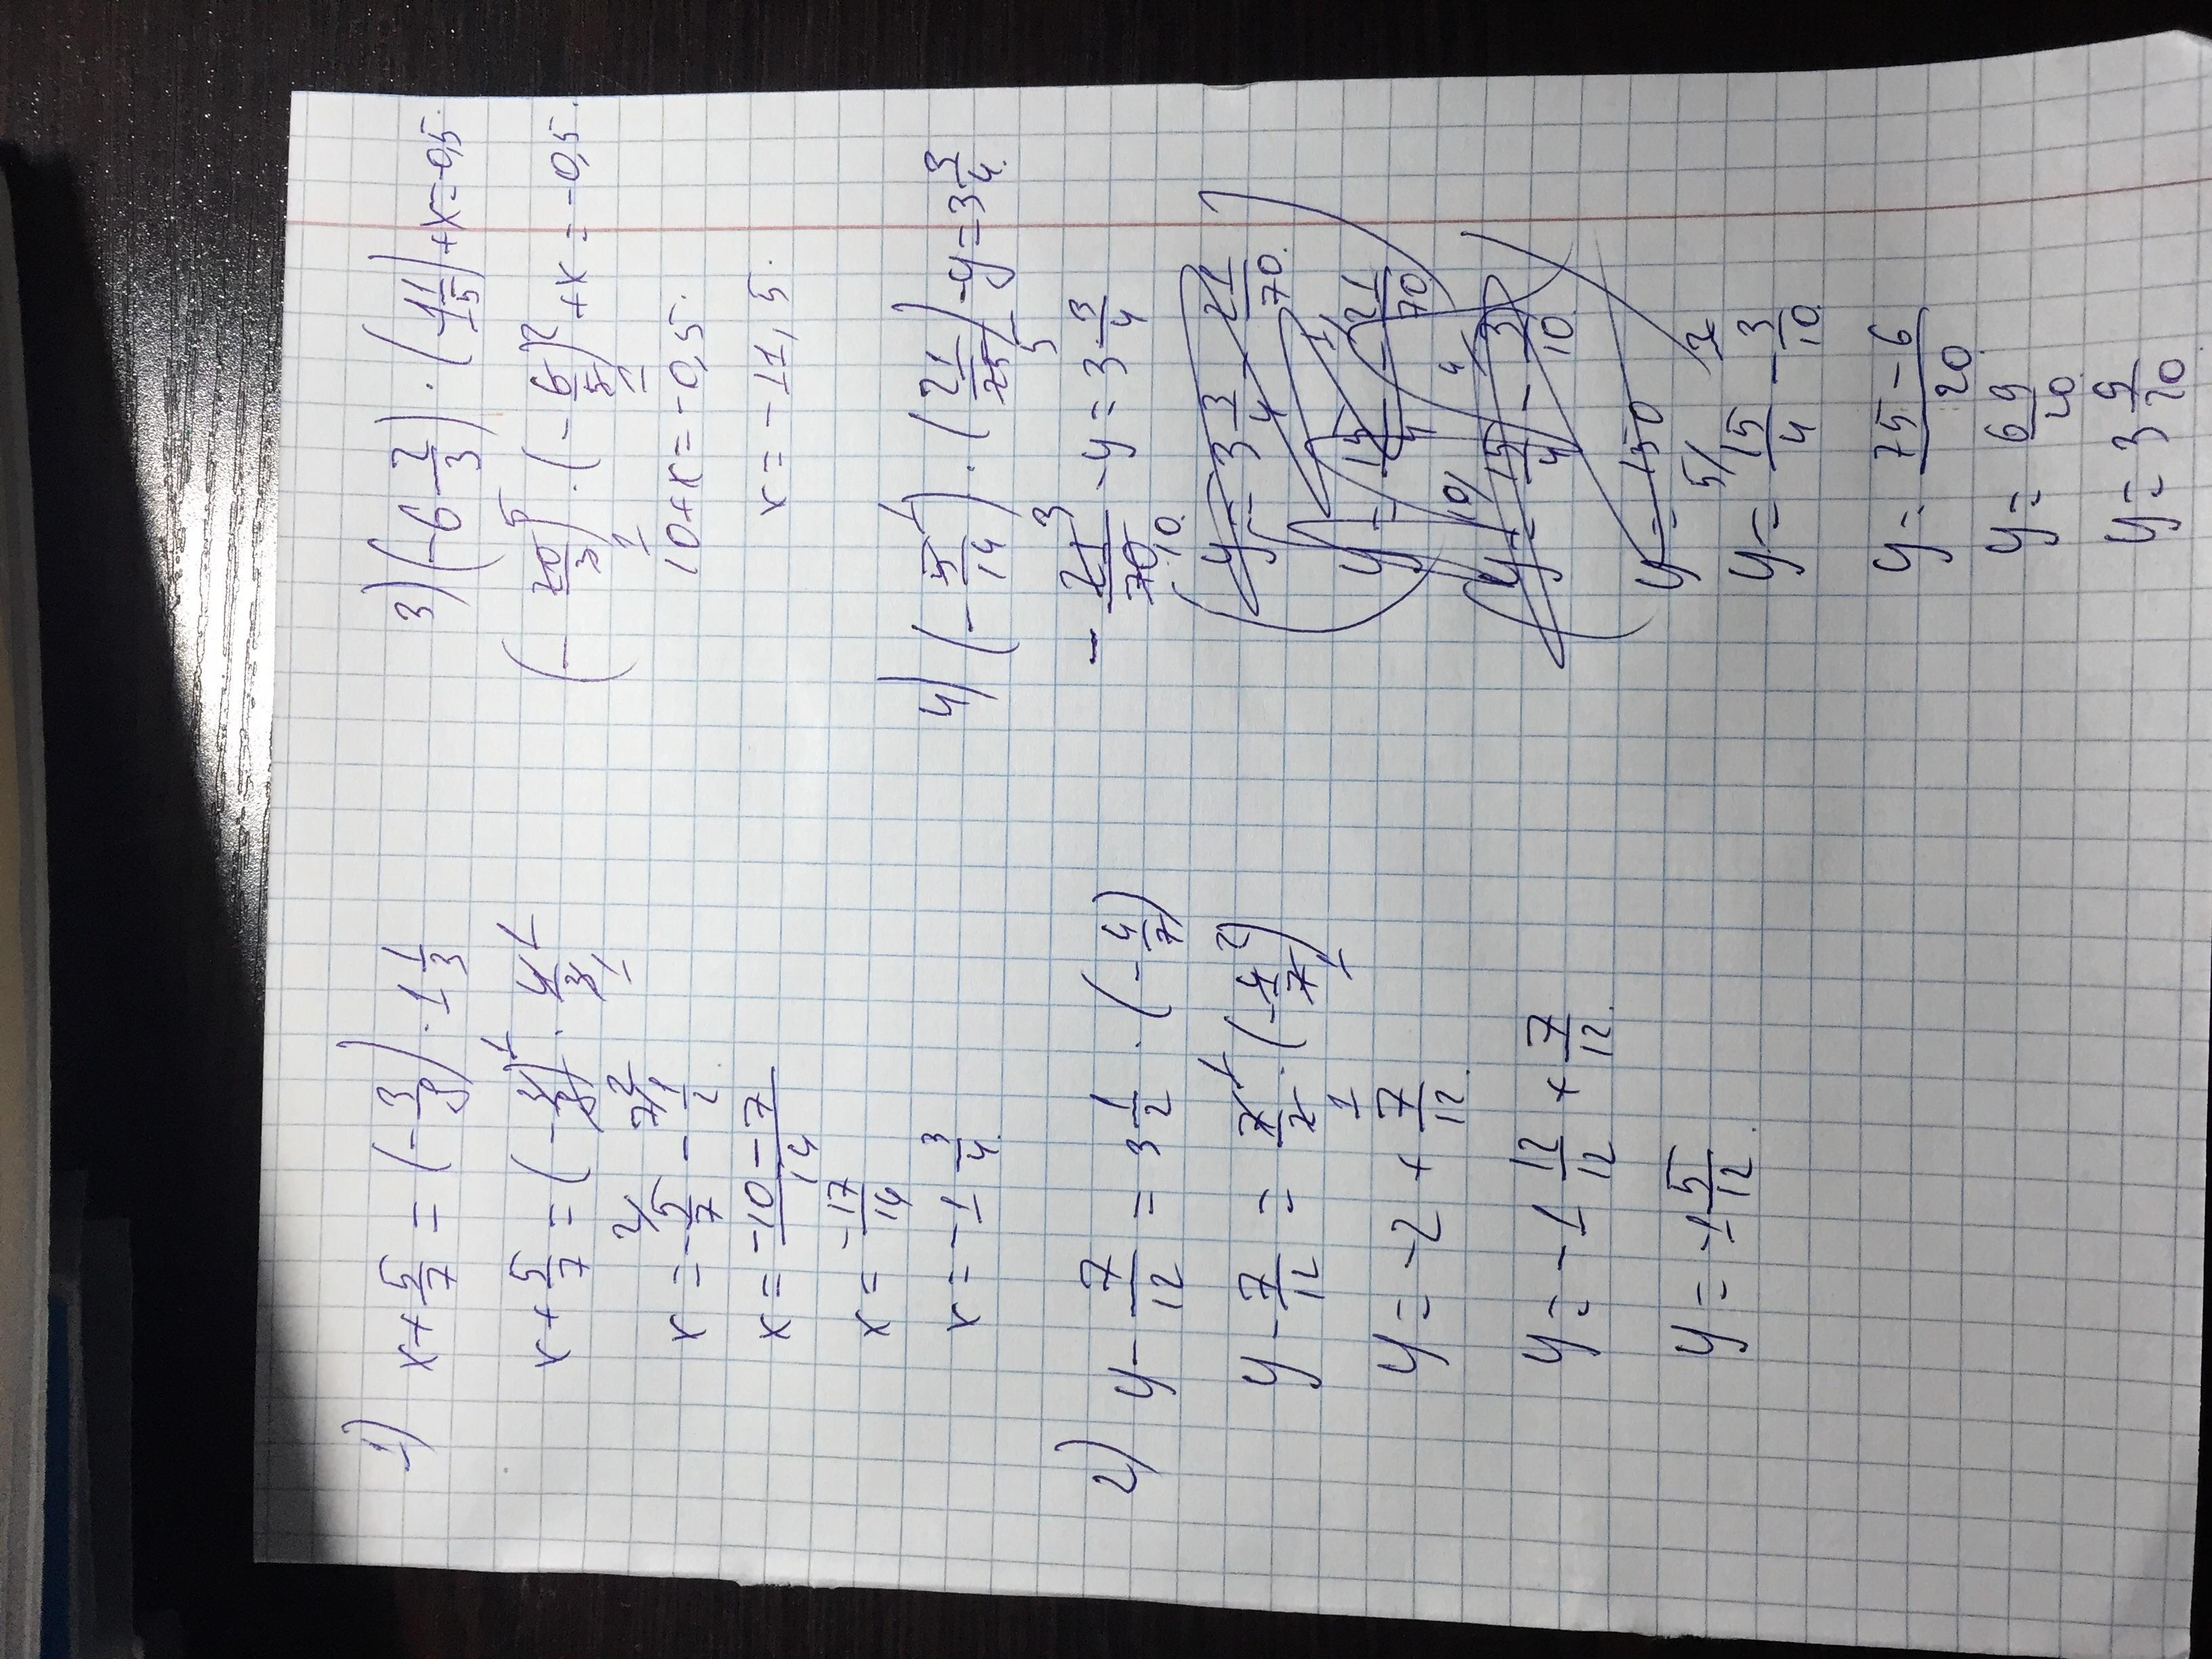 1) x + 5/7 = (- 3/8) · 1 1/3
x + 5/7 = (- 3/8) · 4/3
x = - 5/7 - 1/2
x = -10 - 7/14
x = -17/14
x = -1 3/4
2) y - 7/12 = 3 1/2 · (- 4/7)
y - 7/12 = 7/2 · (- 4/7)
y = -2 + 7/12
y = -1 12/12 + 7/12
y = -1 5/12
3) (-6 - 2/3) · (11/5) + x = -0,5
(- 20/3) · (- 6/5) + x = -0,5
10 + x = -0,5
x = -11,5
4) (- 5/14) · (21/25) - y = 3 3/4
- 21/70 - y = 3 3/4
y = 3 3/4 - 21/70
y = 15/4 - 21/70
y = 15/4 - 3/10
y = 150
y = 15/4 - 3/10
y = 75 - 6/20
y = 69/20
y = 3 9/20